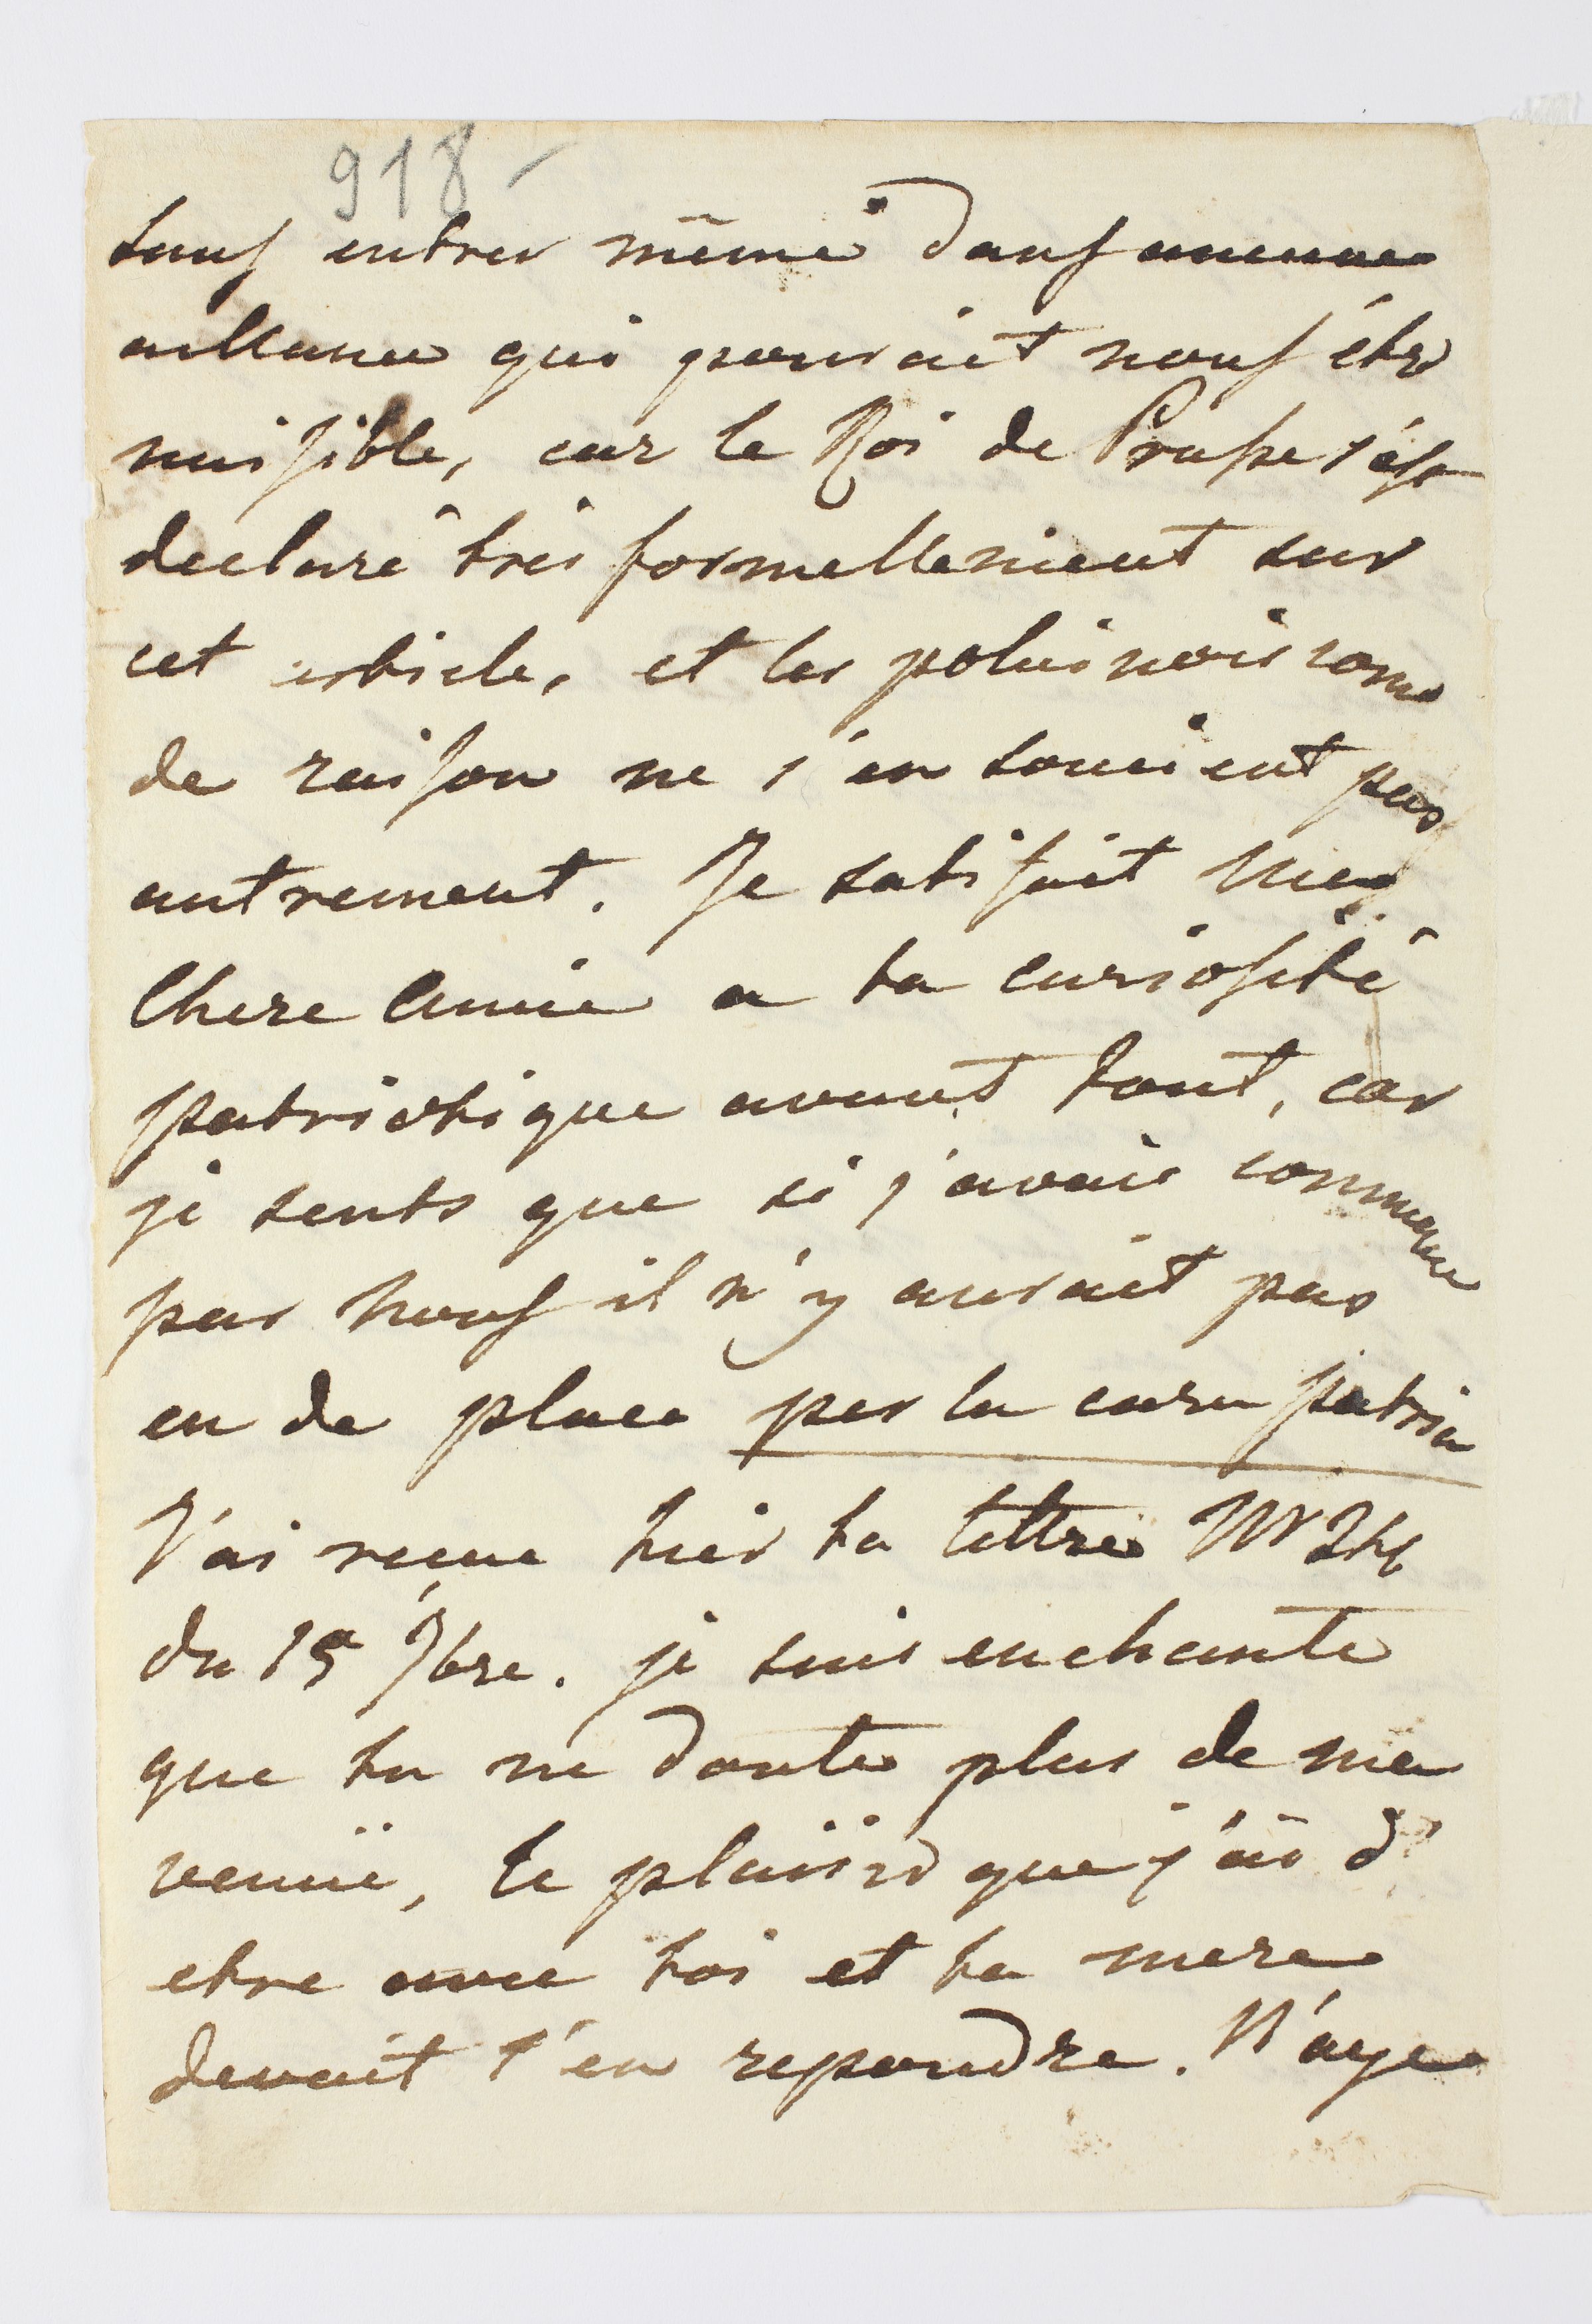 918-
sans entrer même dans aucune
alliance qui pourait nous être
nuisible, car le Roi de Prusse s'est
declaré très formellement sur
cet article, et les polui nois come
de raison ne s'en soucient pas
autrement. Je satisfait Ma
Chere Amie a ta curiosité
patriotique avant tout, car
je sents que si j'avais commence
par nous il n'y aurait pas
eu de place per la cara patria
J'ai reçue hier ta lettre Nr 24
du 15 7bre. je suis enchanté
que tu ne doute plus de ma
venuë, le plaisir que j'ai d'
etre avec toi et ta mere
devait t'en repondre. N'aye